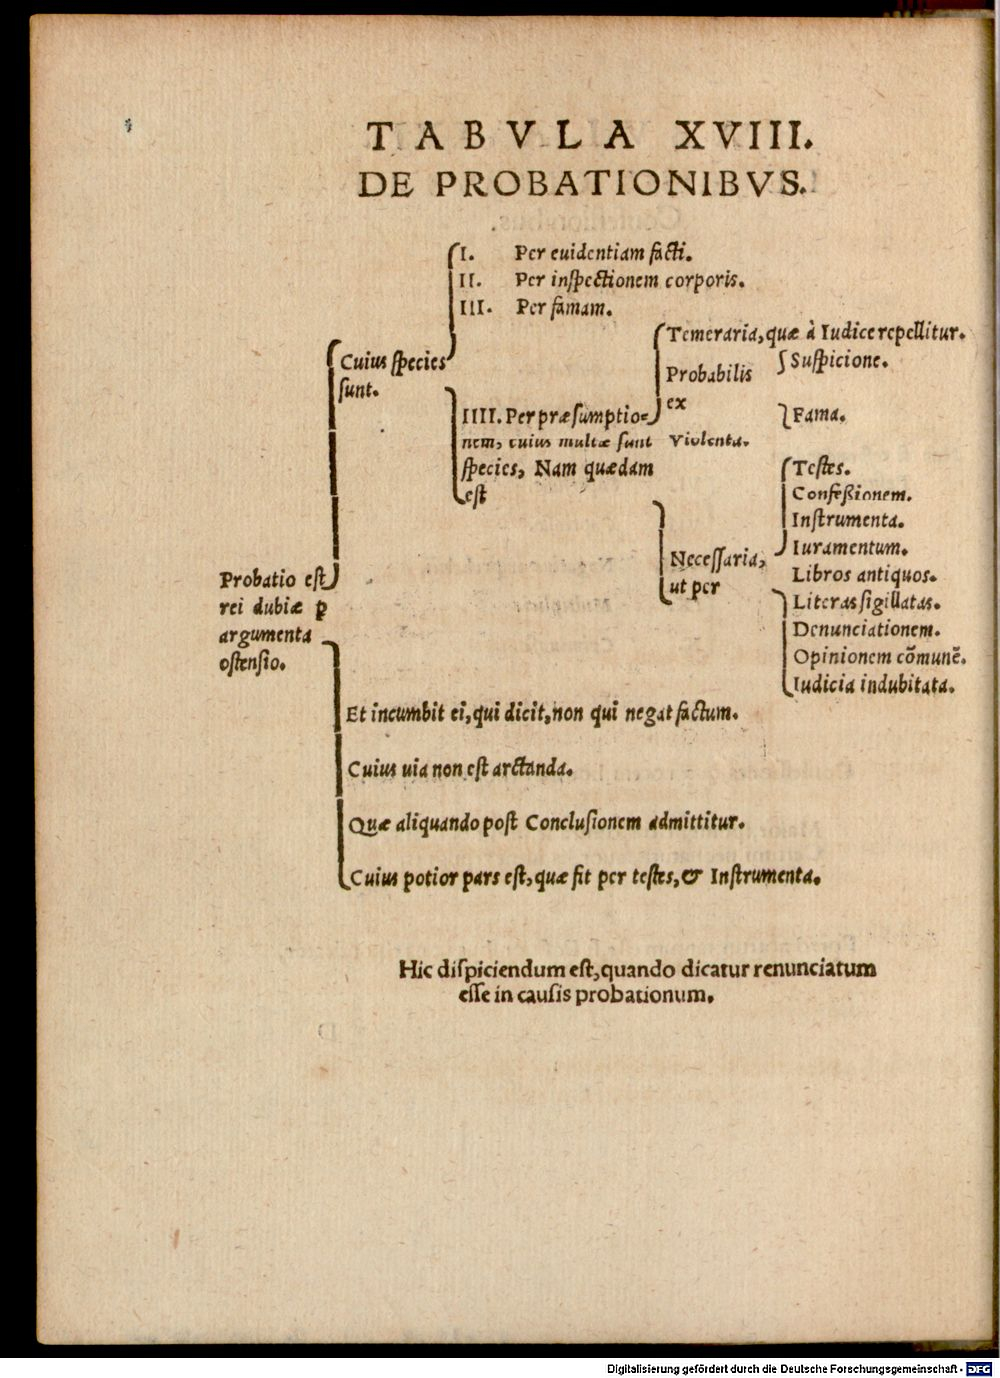 TABVLA XVIII.
DE PROBATIONIBVS.
I. Per euidentiam facti.
II. Per inspectionem corporis.
III. Per famam.
Cuius species
sunt.
IIII. Per præsumptio-
nem, cuius multæ sunt
species, Nam quædam
est
Temeraria, quæ à Iudice repellitur.
Probabilis
ex
Suspicione.
Fama.
Violenta.
Necessaria,
ut per
Testes.
Confeßionem.
Instrumenta.
Iuramentum.
Libros antiquos.
Literas sigillatas.
Denunciationem.
Opinionem cõmunẽ.
Iudicia indubitata.
Probatio est
rei dubiæ ꝑ
argumenta
ostensio.
Et incumbit ei, qui dicit, non qui negat factum.
Cuius uia non est arctanda.
Quæ aliquando post Conclusionem admittitur.
Cuius potior pars est, quæ fit per testes, & Instrumenta.
Hic dispiciendum est, quando dicatur renunciatum
esse in causis probationum.
Digitalisierung gefördert durch die Deutsche Forschungsgemeinschaft - DFG